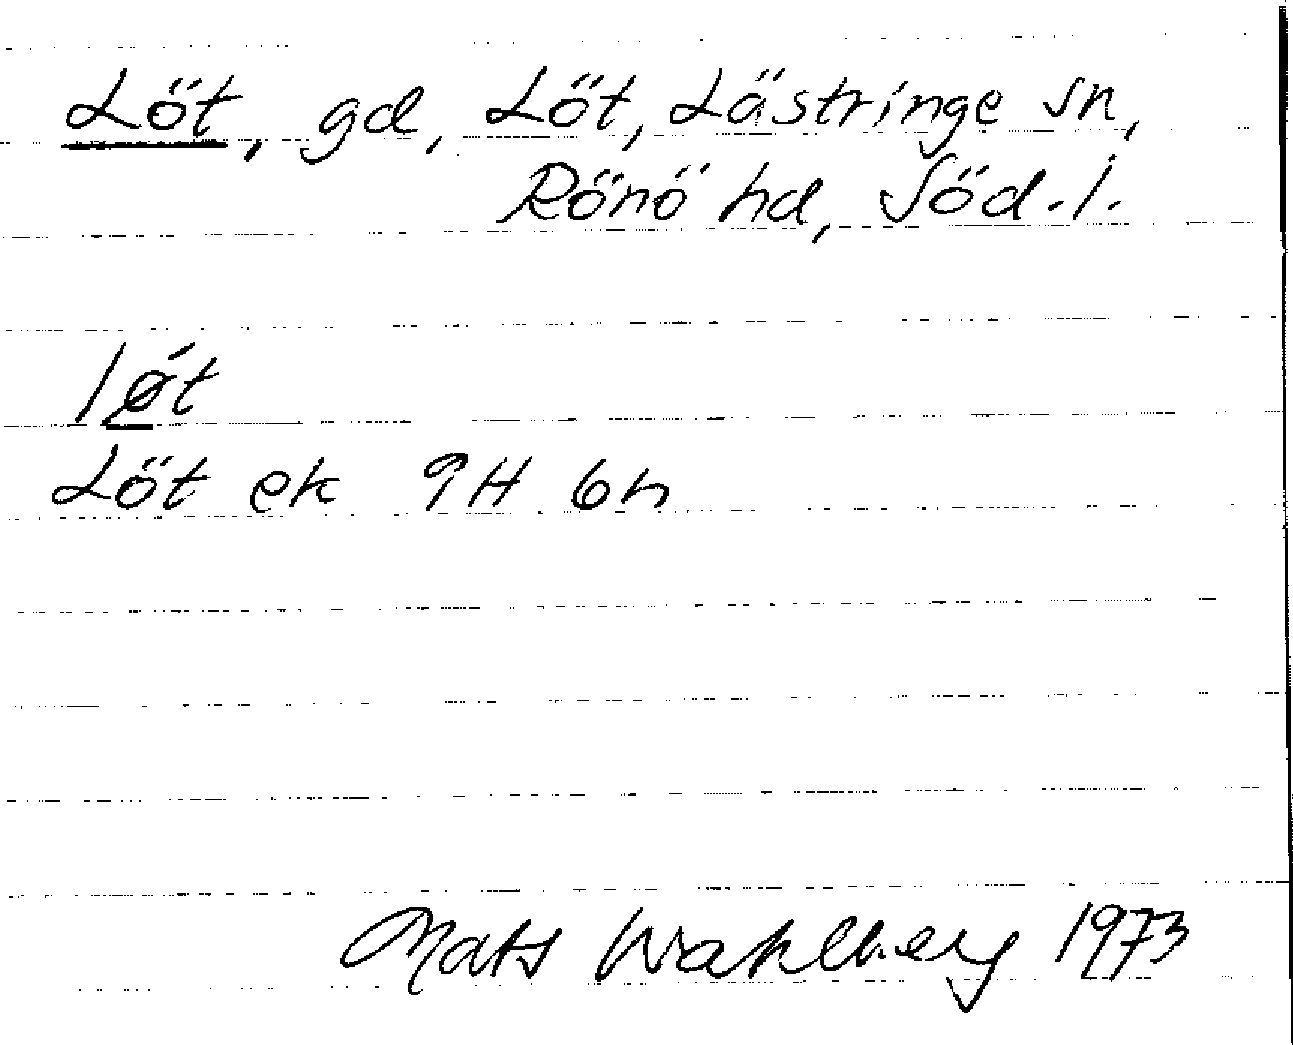 Löt, gd, Löt, Lästringe sn,
Rönö hd, Söd.l.
lǿ̱t
Löt ek 9H 6h
Mats Wahlberg 1973